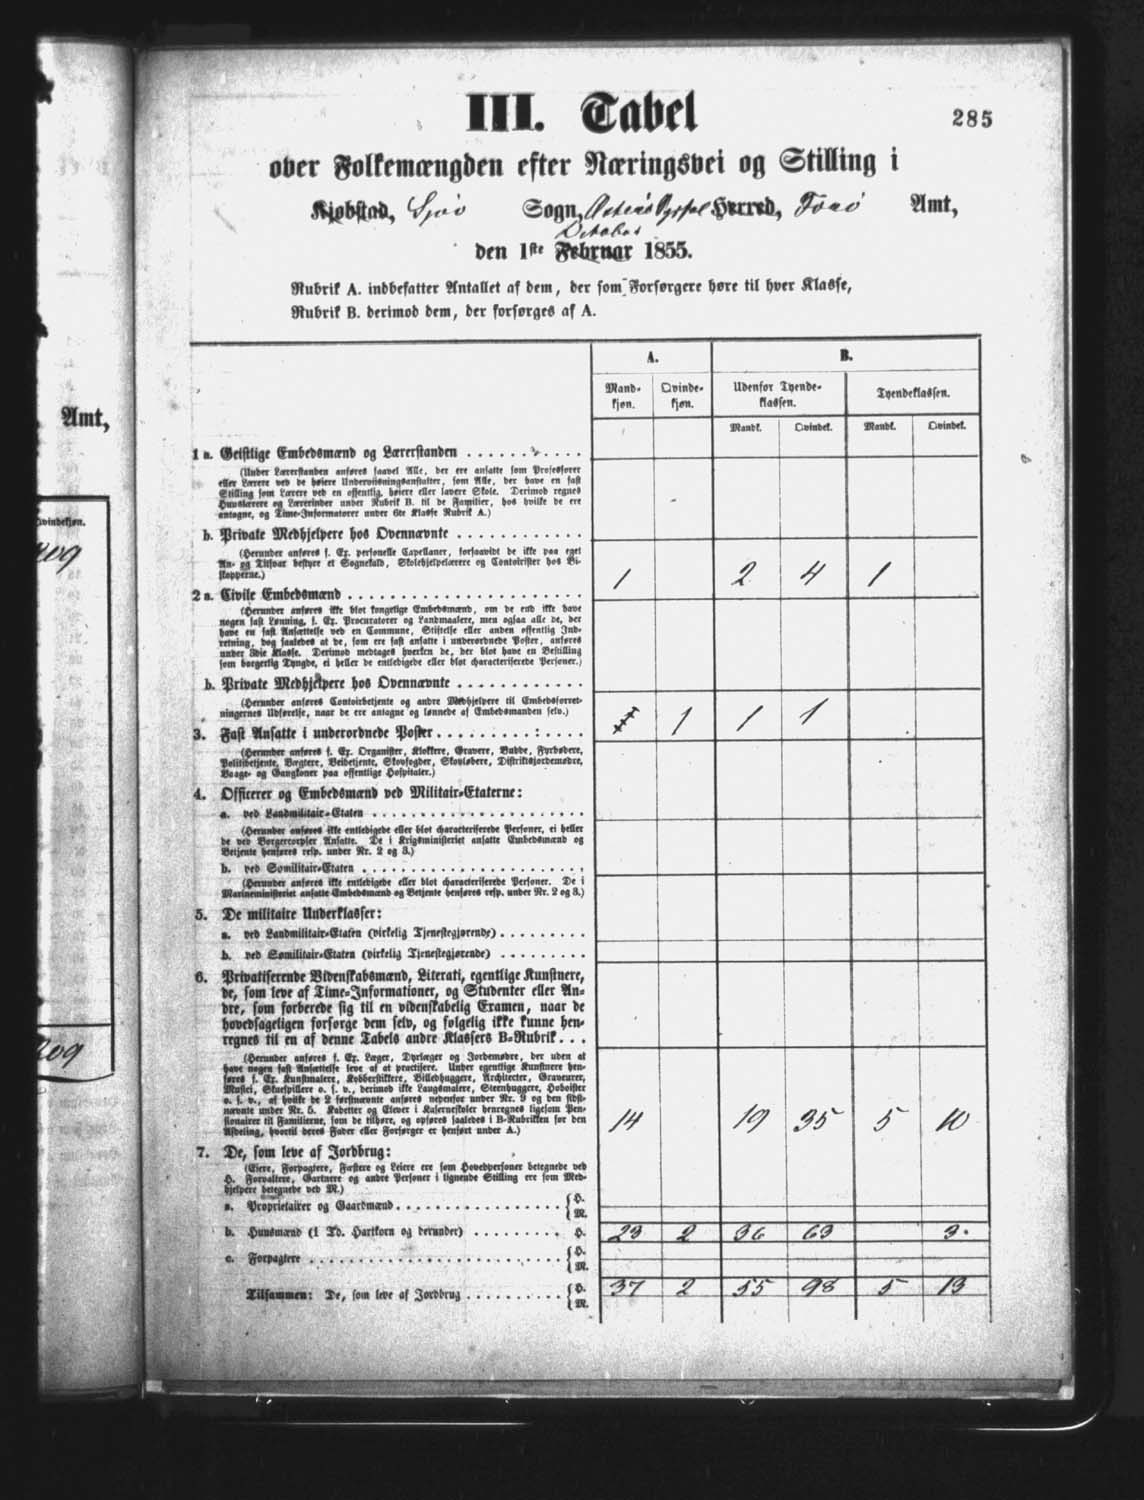 285
III. Tabel
over Folkemængden efter Næringsvei og Stilling i
Kjøbstad, Sjóv Sogn, Østerø Syssel Herred, Færø Amt,
October
den 1ste Februar 1855.
Rubrik A. indbefatter Antallet af dem, der som Forsørgere høre til hver Klasse,
Rubrik B. derimod dem, der forsørges af A.
A. B.
Mandkjøn. Qvindekjøn. Udenfor Tyendeklassen. Tyendeklassen.
Mandk. Qvindek. Mandk. Qvindek.
1 a. Geistlige Embedsmænd og Lærerstanden
(Under Lærerstanden anføres saavel Alle, der ere ansatte som Professorer
eller Lærere ved de høiere Underviisningsanstalter, som Alle, der have en fast
Stilling som Lærere ved en offentlig, høiere eller lavere Skole. Derimod regnes
Huuslærere og Lærerinder under Rubrik B. til de Familier, hos hvilke de ere
antagne, og Time-Informatorer under 6te Klasse Rubrik A.)
b. Private Medhjelpere hos Ovennævnte
(Herunder anføres f. Ex. personelle Capellaner, forsaavidt de ikke paa eget
An- og Tilsvar bestyre et Sognekald, Skolehjelpelærere og Contoirister hos Bi-
skopperne.) 1 2 4 1
2 a. Civile Embedsmænd
(Herunder anføres ikke blot kongelige Embedsmænd, om de end ikke have
nogen fast Lønning, f. Ex. Procuratorer og Landmaalere, men ogsaa alle de, der
have en fast Ansættelse ved en Commune, Stiftelse eller anden offentlig Ind-
retning, dog saaledes at de, som ere fast ansatte i underordnede Poster, anføres
under 3die Klasse. Derimod medtages hverken de, der blot have en Bestilling
som borgerlig Tyngde, ei heller de entledigede eller blot characteriserede Personer.)
b. Private Medhjelpere hos Ovennævnte
(Herunder anføres Contoirbetjente og andre Medhjelpere til Embedsforret-
ningernes Udførelse, naar de ere antagne og lønnede af Embedsmanden selv.) 1 1 1
3. Fast Ansatte i underordnede Poster
(Herunder anføres f. Ex. Organister, Klokkere, Gravere, Budde, Fyrbødere,
Politibetjente, Vægtere, Veibetjente, Skovfogder, Skovløbere, Distriktsjordemødre,
Vaage- og Gangkoner paa offentlige Hospitaler.)
4. Officerer og Embedsmænd ved Militair-Etaterne:
a. ved Landmilitair-Etaten
(Herunder anføres ikke entledigede eller blot characteriserede Personer, ei heller
de ved Borgercorpser Ansatte. De i Krigsministeriet ansatte Embedsmænd og
Betjente henføres resp. under Nr. 2 og 3.)
b. ved Sømilitair-Etaten
(Herunder anføres ikke entledigede eller blot characteriserede Personer. De i
Marineministeriet ansatte Embedsmænd og Betjente henføres resp. under Nr. 2 og 3.)
5. De militaire Underklasser:
a. ved Landmilitair-Etaten (virkelig Tjenestegjørende)
b. ved Sømilitair-Etaten (virkelig Tjenestegjørende)
6. Privatiserende Videnskabsmænd, Literati, egentlige Kunstnere,
de, som leve af Time-Informationer, og Studenter eller An-
dre, som forberede sig til en videnskabelig Examen, naar de
hovedsageligen forsørge dem selv, og følgelig ikke kunne hen-
regnes til en af denne Tabels andre Klassers B-Rubrik
(Herunder anføres f. Ex. Læger, Dyrlæger og Jordemødre, der uden at
have nogen fast Ansættelse leve af at practisere. Under egentlige Kunstnere hen-
føres f. Ex. Kunstmalere, Kobberstikkere, Billedhuggere, Architecter, Graveurer,
Musici, Skuespillere o. s. v., derimod ikke Laugsmalere, Steenhuggere, Hoboister
o. s. v., af hvilke de 2 førstnævnte anføres nedenfor under Nr. 9 og den sidst-
nævnte under Nr. 5. Kadetter og Elever i Kaserneskoler henregnes ligesom Pen-
sionairer til Familierne, som de tilhøre, og opføres saaledes i B-Rubrikken for den
Afdeling, hvortil deres Fader eller Forsørger er henført under A.) 14 19 35 5 10
7. De, som leve af Jordbrug:
(Eiere, Forpagtere, Fæstere og Leiere ere som Hovedpersoner betegnede ved
H. Forvaltere, Gartnere og andre Personer i lignende Stilling ere som Med-
hjelpere betegnede ved M.)
a. Proprietairer og Gaardmænd H.
M.
b. Huusmænd (1 Td. Hartkorn og derunder) H. 23 2 36 63 3.
c. Forpagtere H.
M.
Tilsammen: De, som leve af Jordbrug H. 37 2 55 98 5 13
M.
Amt,
Qvindekjøn.
209
209